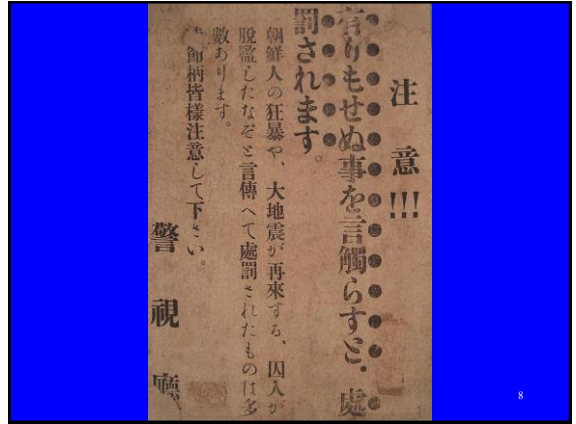 注意!!!
有りもせぬ事を言觸らすと、處
罰されます。
朝鮮人の狂暴や、大地震が再來する、囚人が
脫監したなぞと言傳へて處罰されたものは多
數あります。
節柄皆樣注意して下さい。
警視廳
8